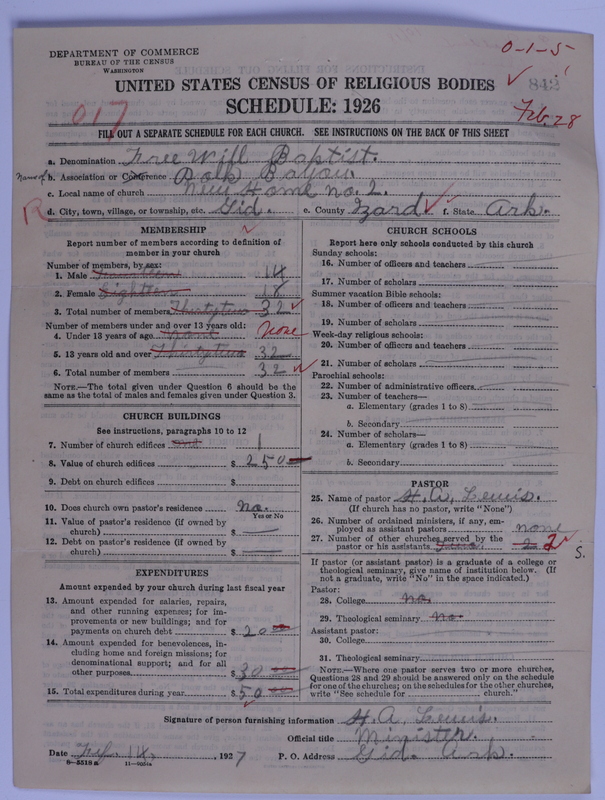 0-1-5
DEPARTMENT OF COMMERCE
BUREAU OF THE CENSUS
WASHINGTON
UNITED STATES CENSUS OF RELIGIOUS BODIES
842
SCHEDULE: 1926
017
Feb. 28
FILL OUT A SEPARATE SCHEDULE FOR EACH CHURCH. SEE INSTRUCTIONS ON THE BACK OF THIS SHEET
a. Denomination Free Will Baptist.
Name of b. Association or Conference Polk Bayou.
c. Local name of church New Home no. 2.
R d. City, town, village, or township, etc. Gid. e. County Izard f. State Ark.
MEMBERSHIP
Report number of members according to definition of member in your church
Number of members, by sex:
1. Male fourteen 14
2. Female Eighteen 18
3. Total number of members Thirtytwo 32
Number of members under and over 13 years old:
4. Under 13 years of age none none
5. 13 years old and over Thirtytwo 32
6. Total number of members 32
NOTE.—The total given under Question 6 should be the same as the total of males and females given under Question 3.
CHURCH BUILDINGS
See instructions, paragraphs 10 to 12
7. Number of church edifices one 1
8. Value of church edifices $ 250
9. Debt on church edifices $
10. Does church own pastor's residence no.
Yes or No
11. Value of pastor's residence (if owned by church) $
12. Debt on pastor's residence (if owned by church) $
EXPENDITURES
Amount expended by your church during last fiscal year
13. Amount expended for salaries, repairs, and other running expenses; for improvements or new buildings; and for payments on church debt $ 20 00
14. Amount expended for benevolences, including home and foreign missions; for denominational support; and for all other purposes $ 30 00
15. Total expenditures during year $ 50 00
CHURCH SCHOOLS
Report here only schools conducted by this church
Sunday schools:
16. Number of officers and teachers
17. Number of scholars
Summer vacation Bible schools:
18. Number of officers and teachers
19. Number of scholars
Week-day religious schools:
20. Number of officers and teachers
21. Number of scholars
Parochial schools:
22. Number of administrative officers
23. Number of teachers—
a. Elementary (grades 1 to 8)
b. Secondary
24. Number of scholars—
a. Elementary (grades 1 to 8)
b. Secondary
PASTOR
25. Name of pastor H. A. Lewis.
(If church has no pastor, write "None")
26. Number of ordained ministers, if any, employed as assistant pastors none
27. Number of other churches served by the pastor or his assistants 2 2
S.
If pastor (or assistant pastor) is a graduate of a college or theological seminary, give name of institution below. (If not a graduate, write "No" in the space indicated.)
Pastor:
28. College no.
29. Theological seminary no.
Assistant pastor:
30. College
31. Theological seminary
NOTE.—Where one pastor serves two or more churches, Questions 28 and 29 should be answered only on the schedule for one of the churches; on the schedules for the other churches, write "See schedule for church."
Signature of person furnishing information H. A. Lewis.
Official title Minister.
Date 14, 1927 P. O. Address Gid. Ark.
8-5518a 11-9051a